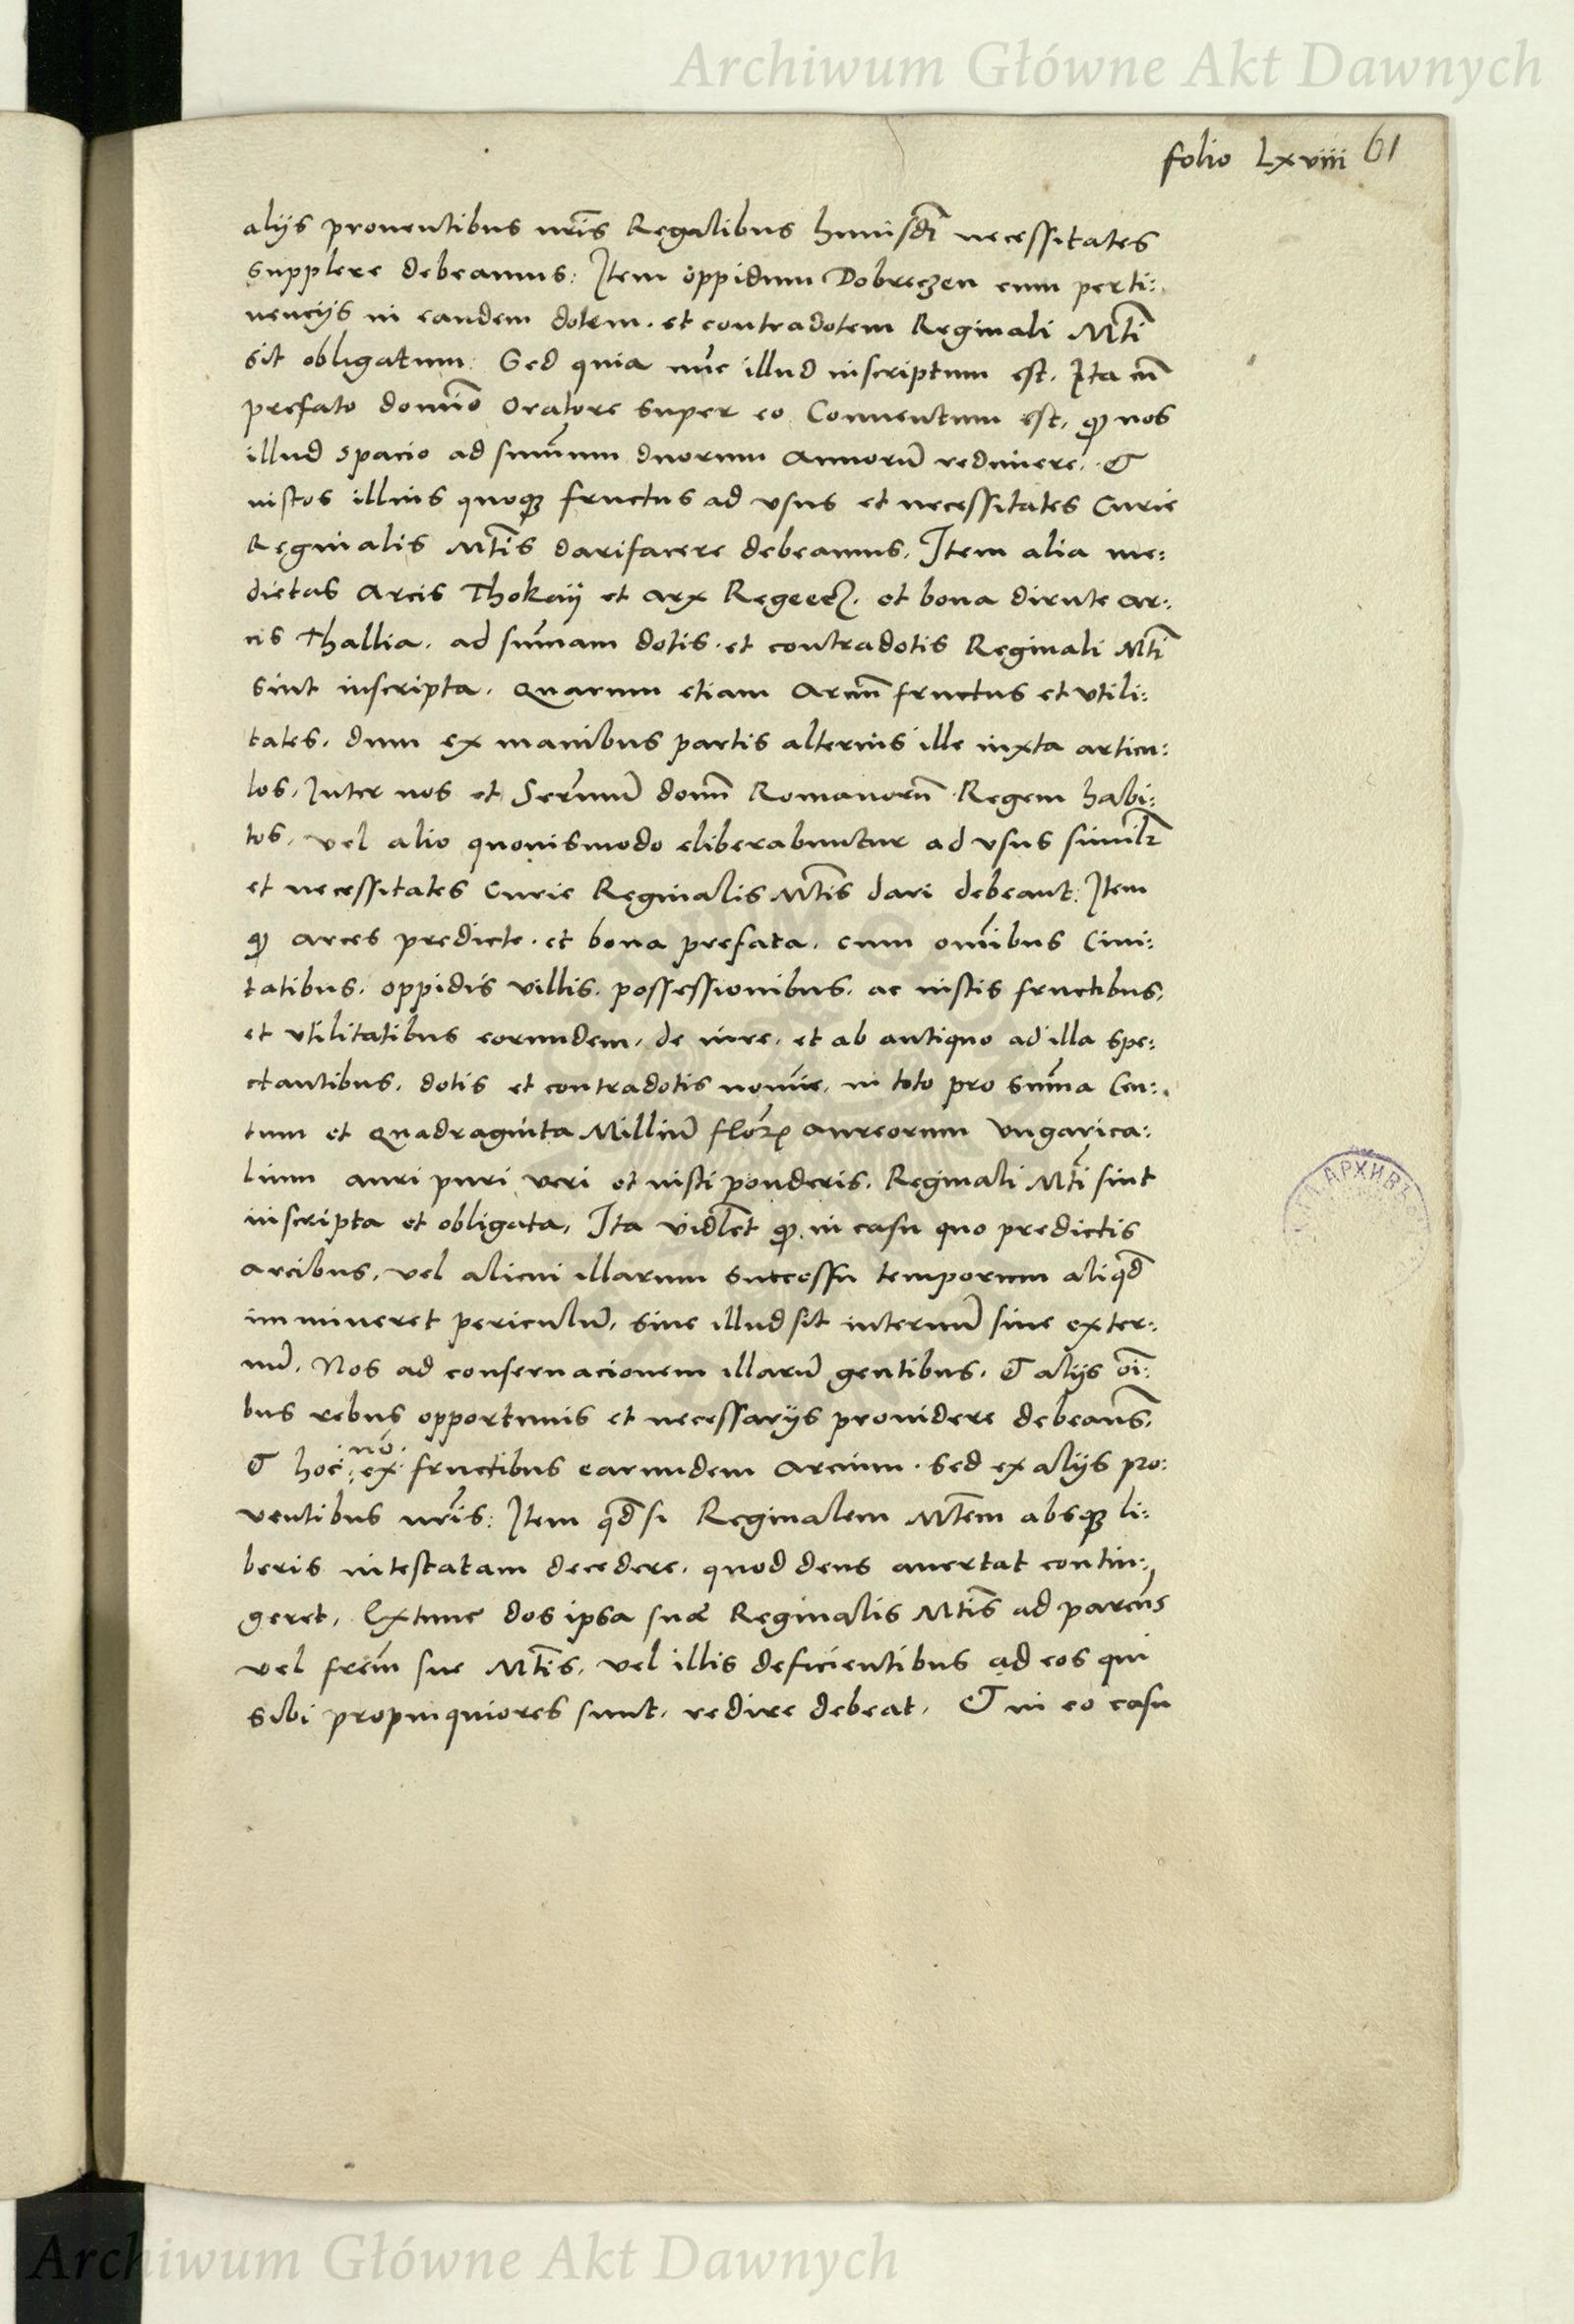 Archiwum Główne Akt Dawnych
folio Lxviii 61
alijs prouentibus nr̃is Regalibus huiusd̃i necessitates
supplere debeamus: Item oppidum Dobreczen cum perti:
nencijs in eandem dotem. et contradotem Reginali Mt̃i
sit obligatum: Sed quia nũc illud inscriptum est. Ita cũ
prefato domĩo Oratore super eo Conuentum est, ꝙ nos
illud spacio ad sum̃um duorum Annorũ redimere, &
iustos illius quoqꝫ fructus ad vsus et necessitates Curie
Reginalis Mt̃is darifacere debeamus, Item alia me:
dietas Arcis Thokaij et Arx Regeecz. et bona dirute ar:
cis Thallia. ad sum̃am dotis. et contradotis Reginali Mt̃i
sint inscripta. Quarum etiam Arciũ fructus et vtili:
tates. dum ex manibus partis alterius ille iuxta articu:
los. Inter nos et Serm̃um domũ Romanorũ Regem habi:
tos. vel alio quouismodo eliberabuntur ad vsus similr̃
et necessitates Curie Reginalis Mt̃is dari debeant: Item
ꝙ arces predicte. et bona prefata. cum om̃ibus Ciui:
tatibus. oppidis villis. possessionibus. ac iustis fructibus,
et vtilitatibus eorundem. de iure. et ab antiquo ad illa spe:
ctantibus. dotis et contradotis nomĩe. in toto pro sum̃a Cen:
tum et Quadraginta Milliũ florꝝ aureorum Vngarica:
lium auri puri veri et iusti ponderis. Reginali Mt̃i sint
inscripta et obligata, Ita vidl̃et ꝙ in casu quo predictis
arcibus. vel alicui illarum successu temporum aliqd̃
immineret periculũ. siue illud sit internũ siue exter:
nũ. Nos ad conseruacionem illarũ gentibus. & alijs oĩ:
bus rebus opportunis et necessarijs prouidere debeam̃s.
nõ.
& hoc : ex fructibus earundem Arcium. sed ex alijs pro:
uentibus nr̃is: Item qd̃ si Reginalem Mt̃em absqꝫ li:
beris intestatam decedere. quod deus auertat contin:
geret. Extunc dos ipsa suæ Reginalis Mt̃is ad parent̃s
vel frẽm sue Mt̃is. vel illis deficientibus ad eos qui
sibi propinquiores sunt. redire debeat. & in eo casu
АРХИВЪ
Archiwum Główne Akt Dawnych